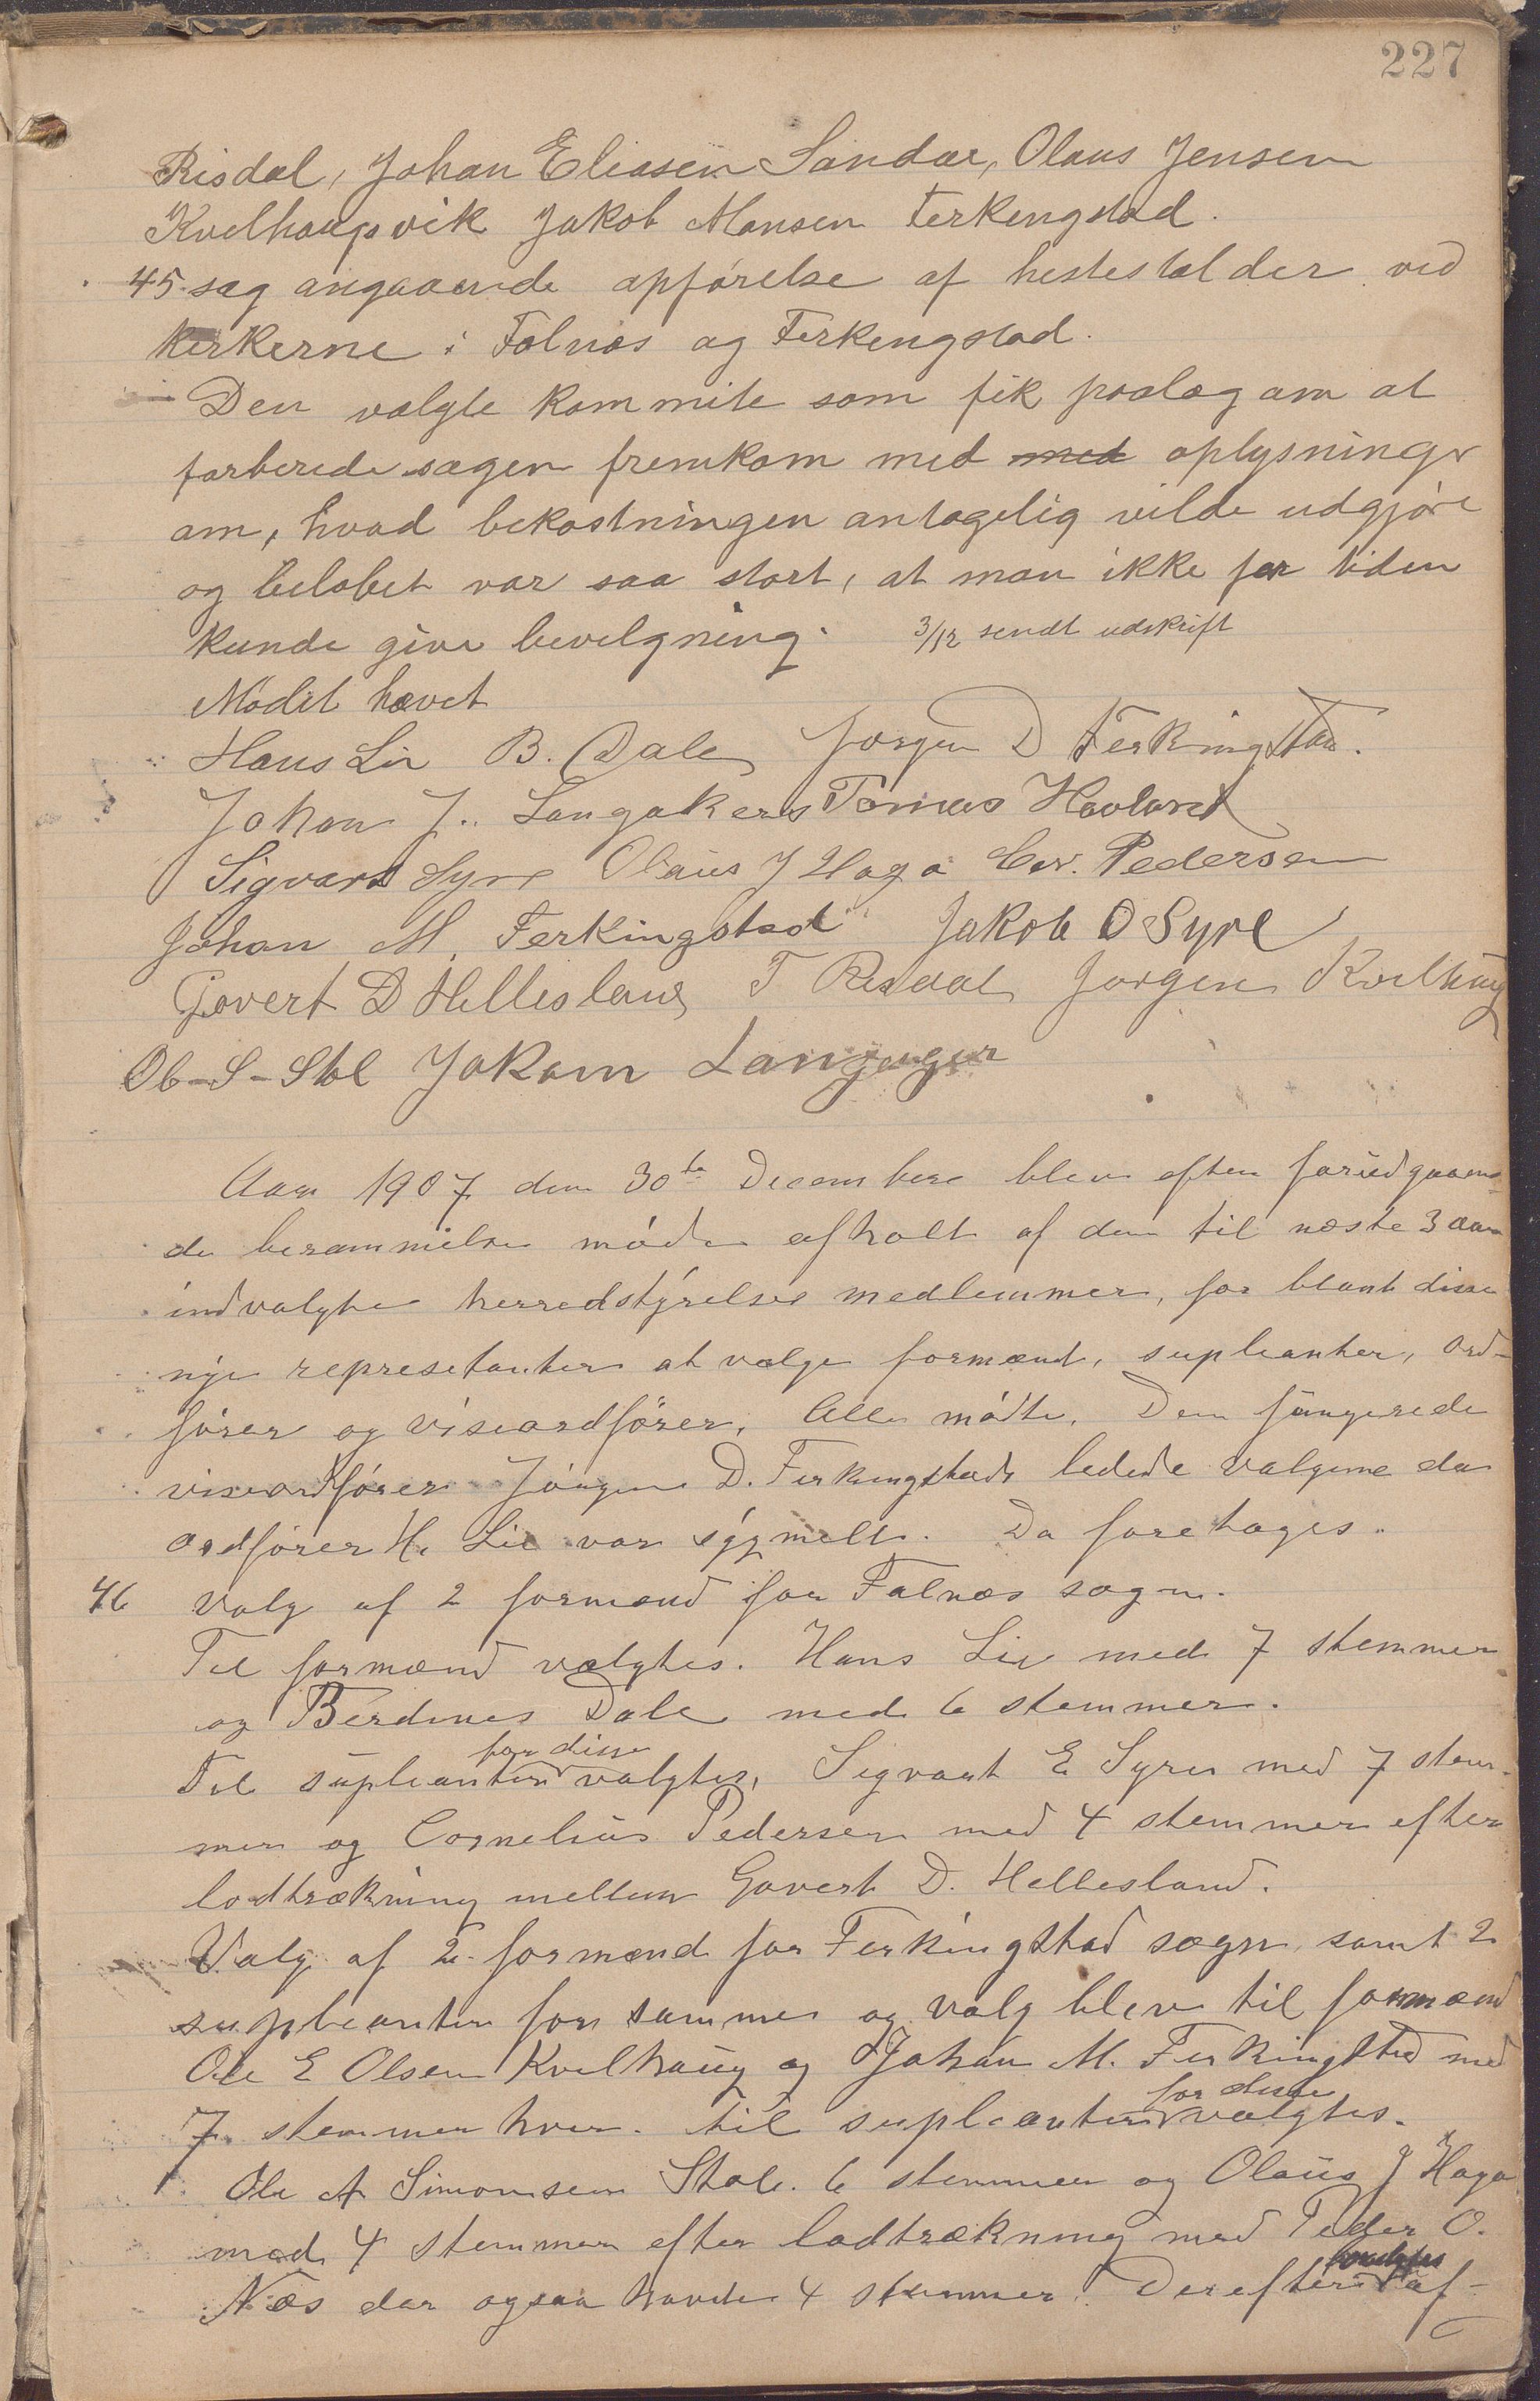 227
Risdal, Johan Eliasen Sandar, Olaus Jensen
Kvelhaugsvik Jakob Mansen Ferkengstad.
45. sag angaaende opførelse af hestestalder ved
kerkerne i Falnæs og Ferkengstad.
Den valgte kommite som fik paalæg om at
forberede sagen fremkom med med oplysninger
om, hvad bekostningen antagelig vilde udgjøre
og beløbet var saa stort, at man ikke for tiden
kunde give bevelgning. 3/12 sendt udskrift
Mødet hævet
Hans Lie B. Dale Jørgen D Ferkingstad.
Johan J. Langaker Tomas Hovland
Sigvart Syre Olaus J Haga Cor. Pedersen
Johan M. Ferkingstad Jakob O Syre
Govert D Hellesland T Risdal Jørgen Kvelhaug
Ob-S-Stol Jokom
Aar 1907 den 30te December blev efter forudgaaen-
de berammelse møde afholt af den til næste 3 aar
indvalgte herredstyrelses medlemmer, for blant disse
nye represetanter at vælge formænd, supleanter, ord-
fører og viseordfører. Alle mødte. Den fungerede
viseordfører Jørgen D. Ferkingstad ledede valgene da
ordfører H. Lie var sygmelt. Da foretoges.
46 Valg af 2 formænd for Falnæs sogn.
Til formænd valgtes. Hans Lie med 7 stemmer
og Berdines Dale med 6 stemmer.
for disse
Til supleanter valgtes, Sigvart E Syre med 7 stem-
mer og Cornelius Pedersen med 4 stemmer efter
lodtrækning mellem Govert D. Hellesland.
Valg af 2 formænd for Ferkingstad sogn samt 2
supleanter for samme og valg blev til formænd
Ole E Olsen Kvelhaug og Johan M. Ferkingstad med
for disse
7 stemmer hver. Til supleanter valgtes.
Ole A Simonsen Stole. 6 stemmer og Olaus J Haga
med 4 stemmer efter lodtrækning med Peder O.
Næs der ogsaa havde 4 stemmer. Derefter af-